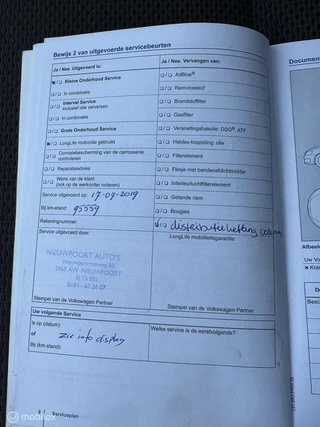 Bewijs 2 van uitgevoerde servicebeurten
Ja / Nee. Uitgevoerd in:
Ja / Nee. Vervangen van:
Kleine Onderhoud Service
In combinatie
Interval Service
inclusief olie verversen
In combinatie
Grote Onderhoud Service
LongLife motorolie gebruikt
Corrosiebescherming van de carrosserie
controleren
Reparatieadvies
Wens van de klant
(ook op de werkorder noteren)
AdBlue®
Remvloeistof
Brandstoffilter
Gasfilter
Versnellingsbakolie: DSG®, ATF
Haldex-koppeling: olie
Filterelement
Flesje met bandenafdichtmiddel
Interieurluchtfilterelement
Getande riem
Bougies
distributieketting
Service uitgevoerd op: 17-07-2019
Bij km-stand: 95559
Rekeningnummer:
Service uitgevoerd door:
LongLife mobiliteitsgarantie:
NIEUWPOORT AUTO'S
NIEUWPOORT
Stempel van de Volkswagen Partner
Stempel van de Volkswagen Partner
Uw volgende Service
Is op (datum):
of zie info display
Bij (km-stand):
Welke service is de eerstvolgende?
Serviceplan
Document
Afbeelding
Uw Vo
Kras
mobilox